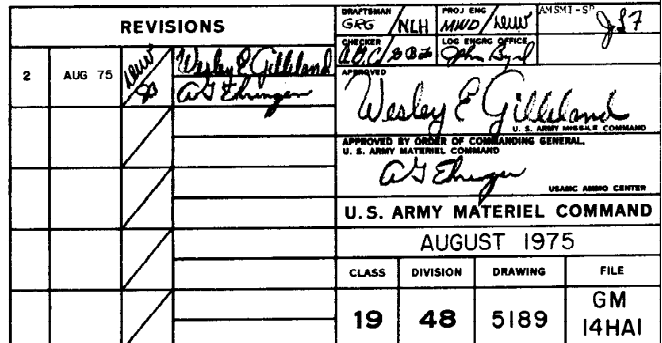 REVISIONS
2 AUG 75
Wesley E Gilleland
A G Ehringer
DRAFTSMAN
GRG / NLH
PROJ ENG
MWD /
AMSMI-SP
CHECKER
LOG ENGRG OFFICE
John Byrd
APPROVED
Wesley E Gilleland
U. S. ARMY MISSILE COMMAND
APPROVED BY ORDER OF COMMANDING GENERAL,
U. S. ARMY MATERIEL COMMAND
A G Ehringer
USAMC AMMO CENTER
U.S. ARMY MATERIEL COMMAND
AUGUST 1975
CLASS DIVISION DRAWING FILE
19 48 5189 GM
14HA1